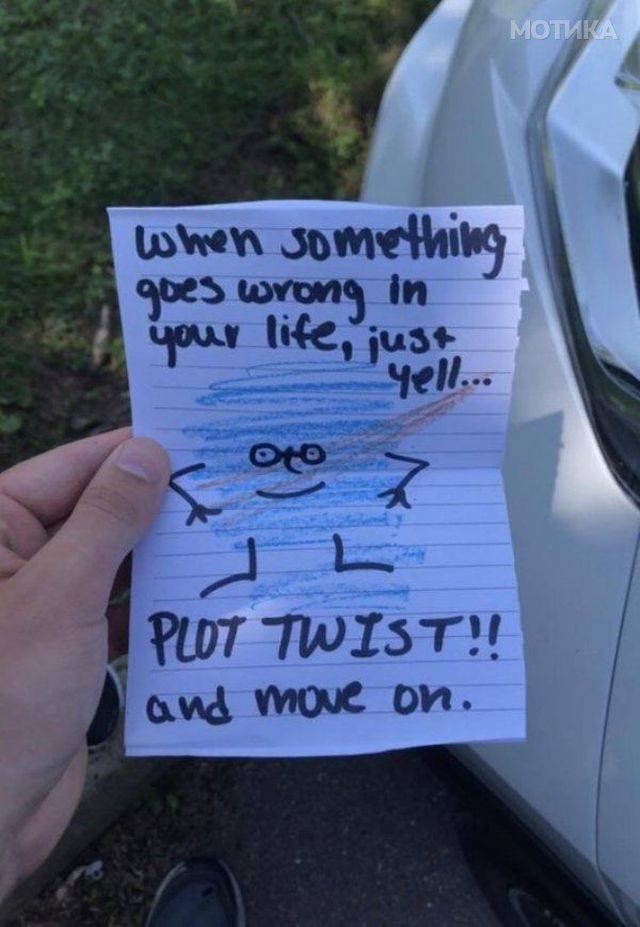 МОТИКА
when something
goes wrong in
your life, just
yell...
PLOT TWIST!!
and move on.